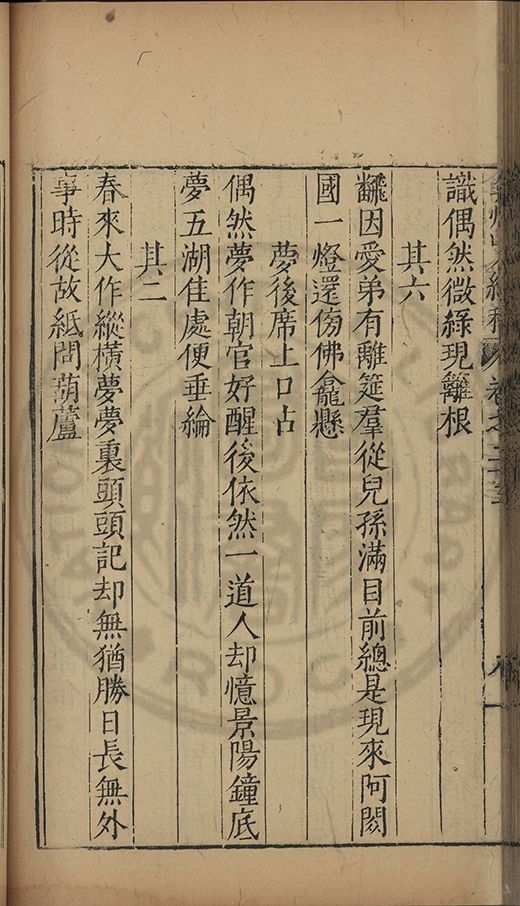 識偶然微緑現籬根
其六
飜因愛弟有離筵羣從兒孫滿目前總是現來阿閦
國一燈還傍佛龕懸
夢後席上口占
偶然夢作朝官好醒後依然一道人却憶景陽鐘底
夢五湖佳處便垂綸
其二
春來大作縱橫夢夢裏頭頭記却無猶勝日長無外
事時從故紙問葫蘆